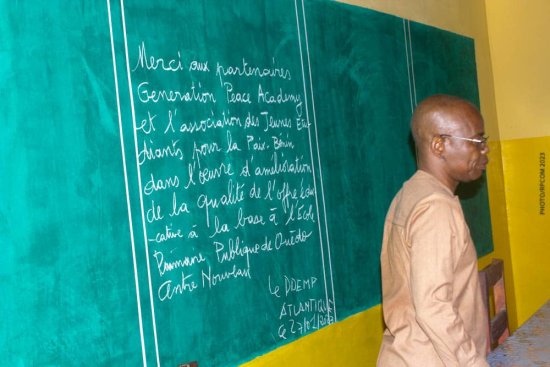 Merci aux partenaires
Generation Peace Academy
et l'association des Jeunes Etu-
diants pour la Paix-Bénin
dans l'œuvre d'amélioration
de la qualité de l'offre édu
-cative à la base à l'École
Primaire Publique de Ouèdo
Antre Nouveau
Le DDEMP
ATLANTIQUE
le 27/02/2023
PHOTO/RPCOM 2023